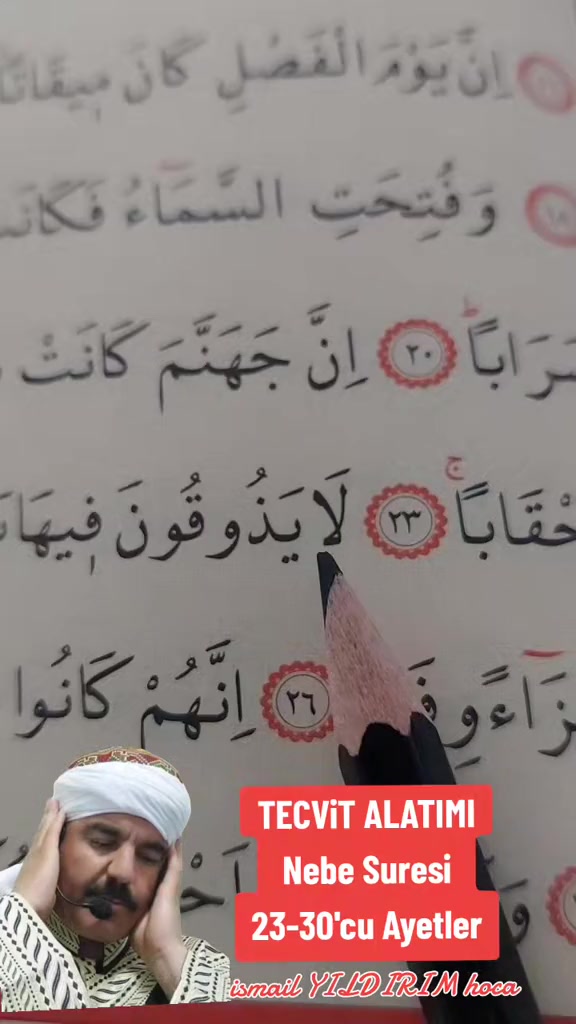 اِنَّ يَوْمَ الْفَصْلِ كَانَ م۪يقَاتًا
١٨ وَفُتِحَتِ السَّمَٓاءُ فَكَانَتْ
سَرَابًاۜ ٢٠ اِنَّ جَهَنَّمَ كَانَتْ
اَحْقَابًاۚ ٢٣ لَا يَذُوقُونَ ف۪يهَا
جَزَٓاءً وِفَاقًا ٢٦ اِنَّهُمْ كَانُوا
TECViT ALATIMI
Nebe Suresi
23-30'cu Ayetler
ismail YILDIRIM hoca